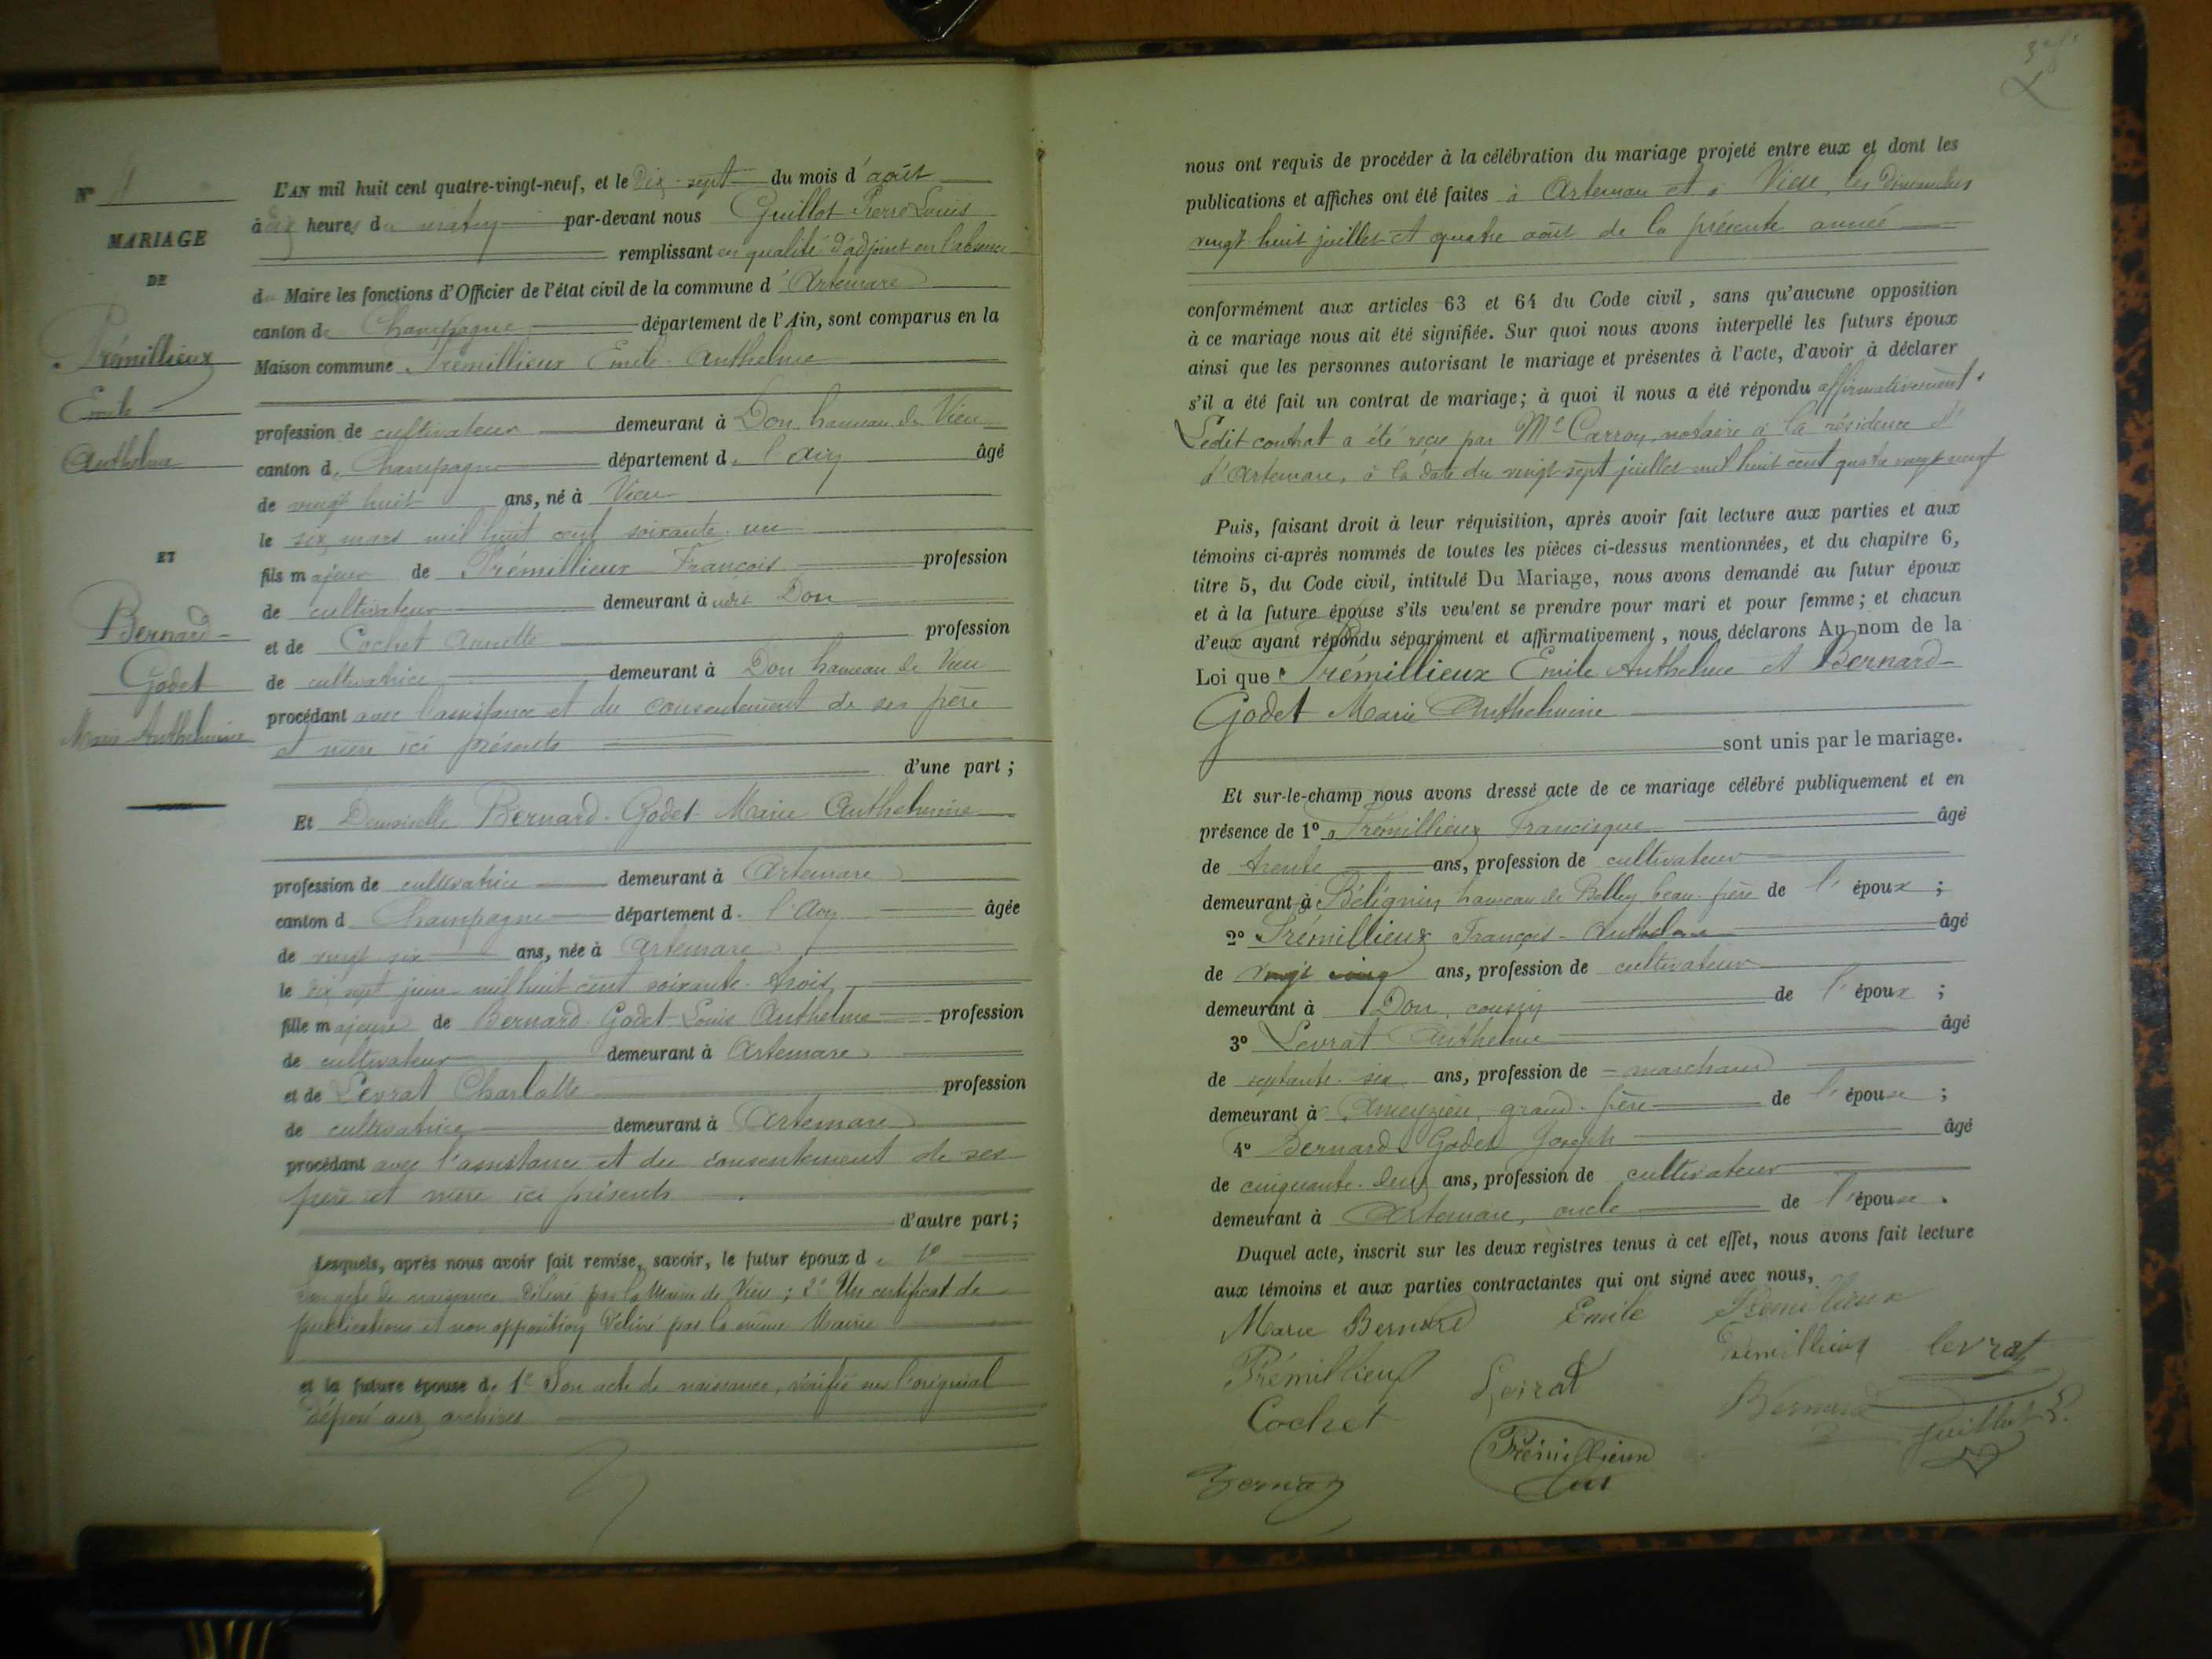 MARIAGE
DE
Prémillieux
Emile
Anthelme
ET
Bernard-
Godet
Marie Anthelmine
L'AN mil huit cent quatre-vingt-neuf, et le Dix-sept du mois d'août
à dix heures du matin par-devant nous Guillot Pierre Louis
remplissant en qualité d'adjoint en l'absence
du Maire les fonctions d'Officier de l'état civil de la commune d'Artemare
canton de Champagne département de l'Ain, sont comparus en la
Maison commune Prémillieux Emile-Anthelme
profession de cultivateur demeurant à Don hameau de Vieu
canton de Champagne département de l'Ain âgé
de vingt huit ans, né à Vieu
le six mars mil huit cent soixante-un
fils majeur de Prémillieux François profession
de cultivateur demeurant à udit Don
et de Cochet Annette profession
de cultivatrice demeurant à Don hameau de Vieu
procédant avec l'assistance et du consentement de ses père
et mère ici présents
d'une part ;
Et Demoiselle Bernard-Godet Marie Anthelmine
profession de cultivatrice demeurant à Artemare
canton d Champagne département de l'Ain âgée
de vingt six ans, née à Artemare
le dix sept juin mil huit cent soixante-trois
fille majeure de Bernard-Godet Louis Anthelme profession
de cultivateur demeurant à Artemare
et de Levrat Charlotte profession
de cultivatrice demeurant à Artemare
procédant avec l'assistance et du consentement de ses
père et mère ici présents
d'autre part ;
Lesquels, après nous avoir fait remise, savoir, le futur époux de 1º
son acte de naissance délivré par la Mairie de Vieu ; 2º Un certificat de
publications et non opposition délivré par la même Mairie
et la future épouse de 1º Son acte de naissance, vérifié sur l'original
déposé aux archives
nous ont requis de procéder à la célébration du mariage projeté entre eux et dont les
publications et affiches ont été faites à Artemare et à Vieu, les Dimanches
vingt-huit juillet et quatre août de la présente année
conformément aux articles 63 et 64 du Code civil, sans qu'aucune opposition
à ce mariage nous ait été signifiée. Sur quoi nous avons interpellé les futurs époux
ainsi que les personnes autorisant le mariage et présentes à l'acte, d'avoir à déclarer
s'il a été fait un contrat de mariage; à quoi il nous a été répondu affirmativement.
Ledit contrat a été reçu par Me Carron notaire à la résidence d'
d'Artemare, à la date du vingt-sept juillet mil huit cent quatre vingt neuf
Puis, faisant droit à leur réquisition, après avoir fait lecture aux parties et aux
témoins ci-après nommés de toutes les pièces ci-dessus mentionnées, et du chapitre 6,
titre 5, du Code civil, intitulé Du Mariage, nous avons demandé au futur époux
et à la future épouse s'ils veulent se prendre pour mari et pour femme ; et chacun
d'eux ayant répondu séparément et affirmativement, nous déclarons Au nom de la
Loi que Prémillieux Emile Anthelme et Bernard-
Godet Marie Anthelmine
sont unis par le mariage.
Et sur-le-champ nous avons dressé acte de ce mariage célébré publiquement et en
présence de 1º Prémillieux Francisque âgé
de trente ans, profession de cultivateur
demeurant à Bélignin hameau de Belley beau-frère de l'époux ;
2º Prémillieux François-Anthelme âgé
de vingt cinq ans, profession de cultivateur
demeurant à Don, cousin de l'époux ;
3º Levrat Anthelme âgé
de septante-six ans, profession de marchand
demeurant à Ameyzieu, grand-père de l'épouse ;
4º Bernard Godet Joseph âgé
de cinquante-deux ans, profession de cultivateur
demeurant à Artemare, oncle de l'épouse.
Duquel acte, inscrit sur les deux registres tenus à cet effet, nous avons fait lecture
aux témoins et aux parties contractantes qui ont signé avec nous,
Marie Bernard Emile Prémillieux
Prémillieux Levrat Prémillieux levrat
Cochet Bernard Guillot
Bernard Prémillieux